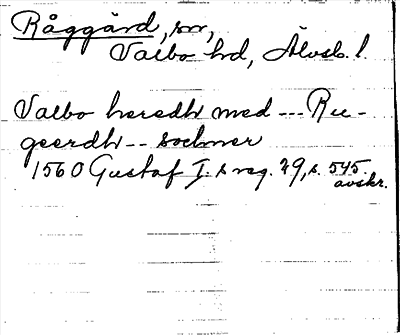 Råggärd, sn,
Valbo hd, Älvsb. l.
Valbo heredh med --- Ru-
geerdh -- sochner
1560 Gustaf I:s reg. 29, s. 545
avskr.